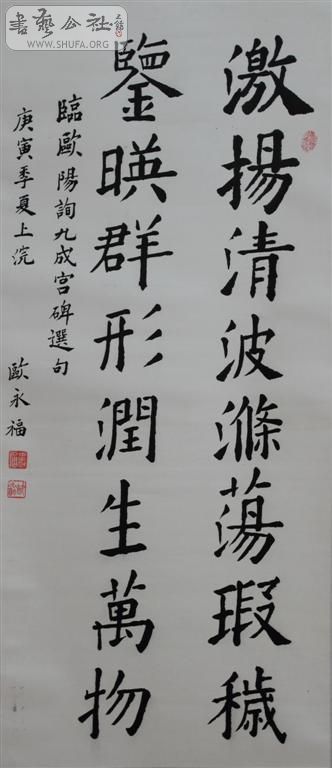 激揚清波滌蕩瑕穢
鑒暎群形潤生萬物
臨歐陽詢九成宮碑選句
庚寅季夏上浣
歐永福
書藝公社
WWW.SHUFA.ORG